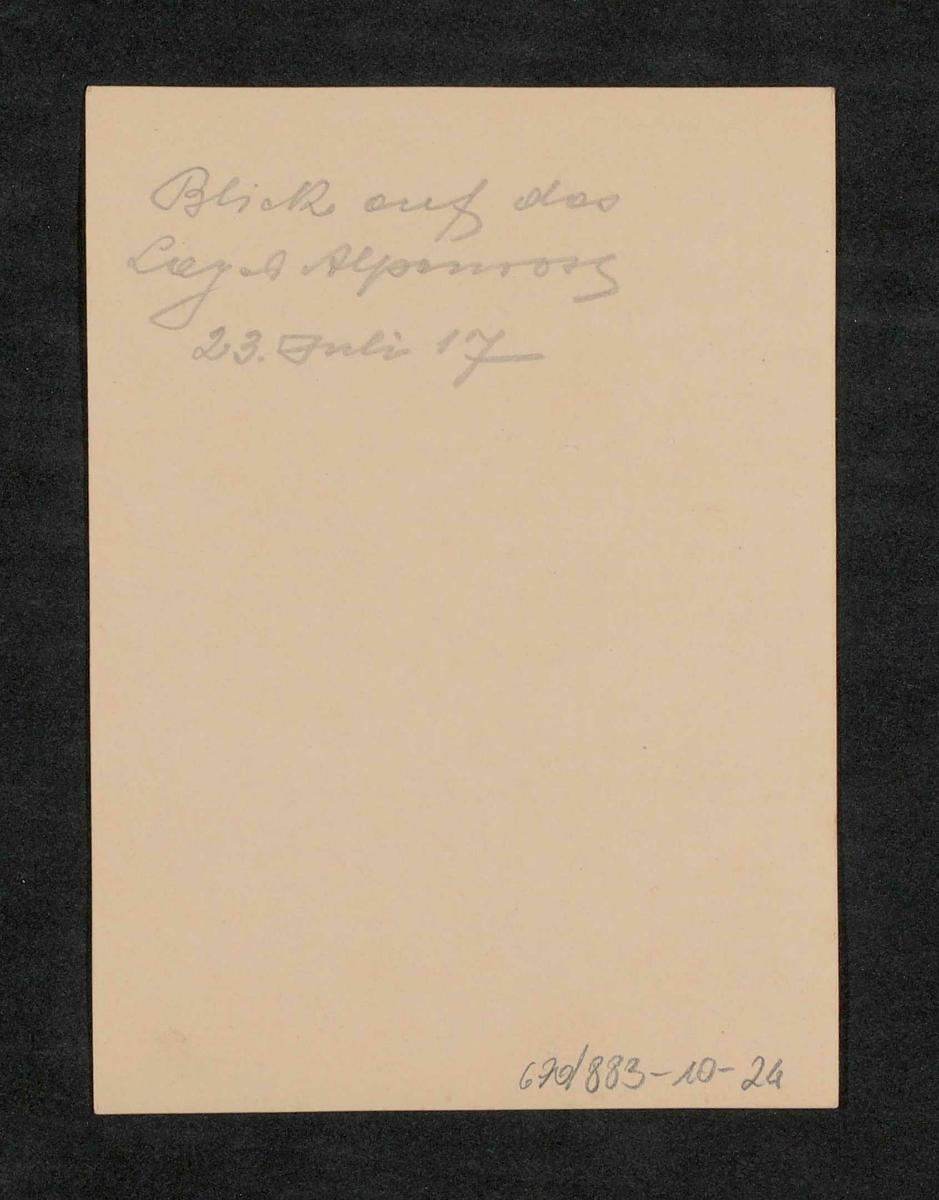 Blick auf das
Lager Alpenrose
23. Juli 17
679/883-10-24